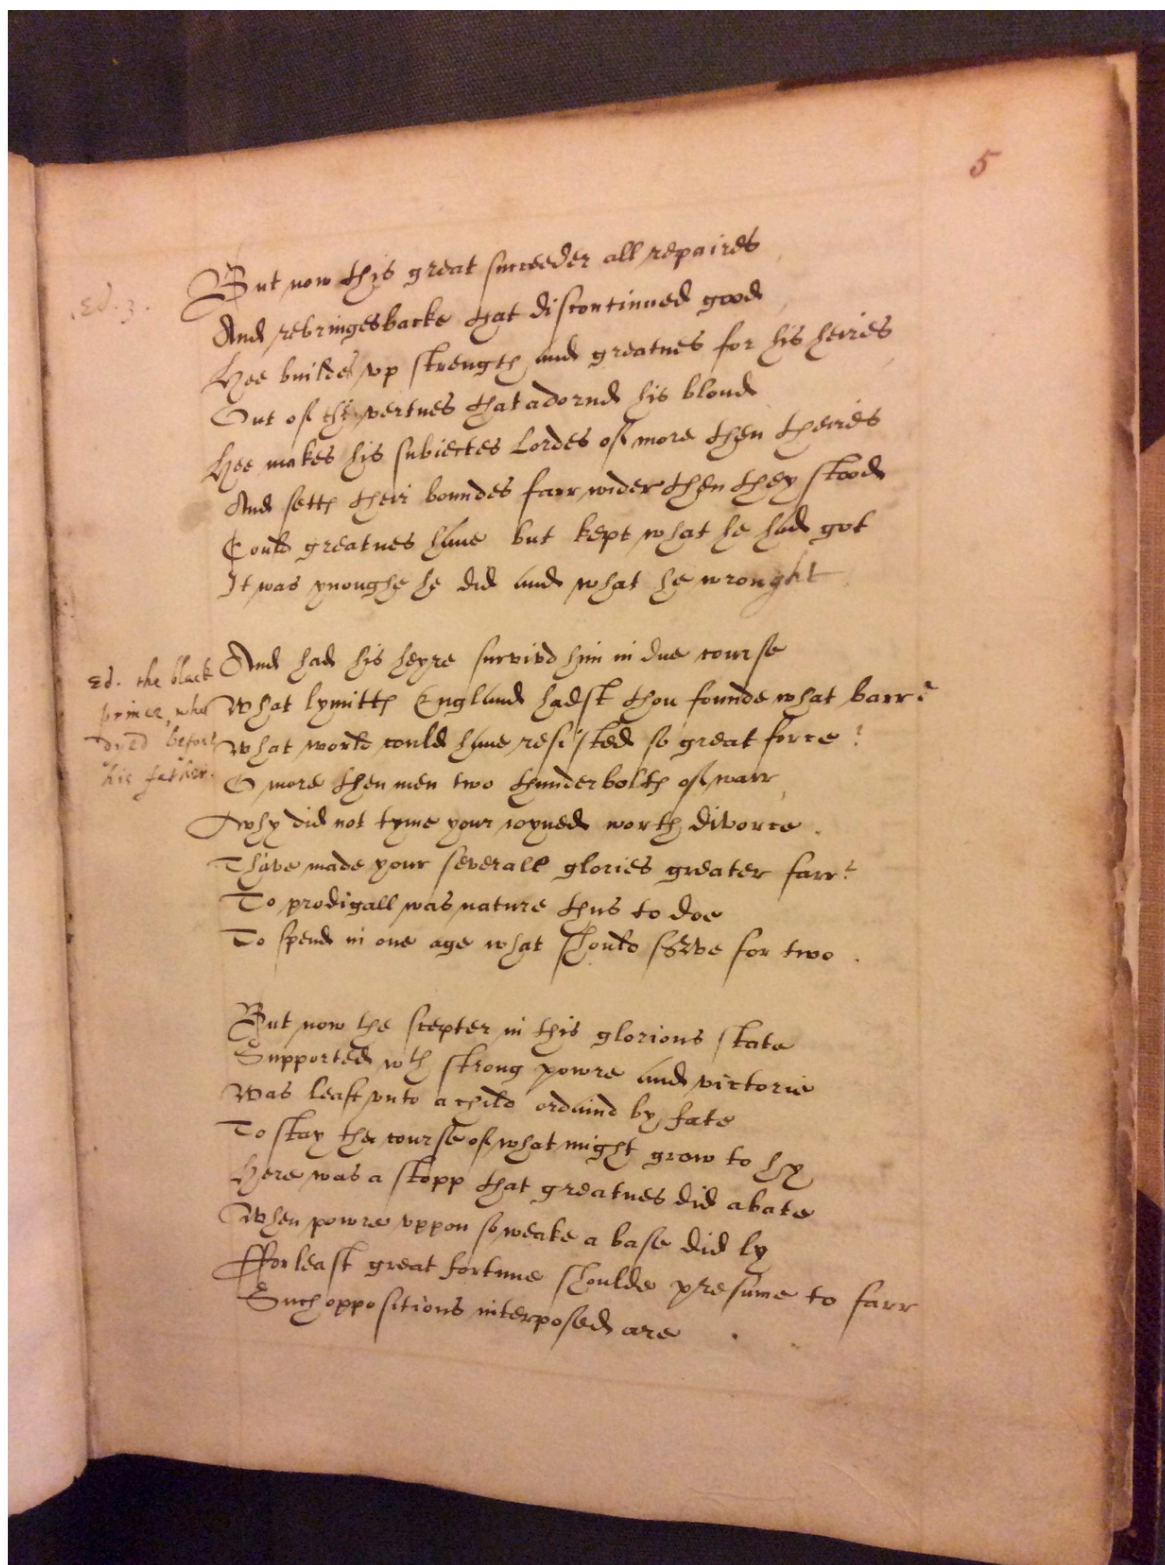 5
Ed. 3.
But now this great succeeder all repaires
And rebringes backe that discontinued good
Hee buildes vp strength and greatnes for his heires
Out of the vertues that adornd his bloud
Hee makes his subiectes Lordes of more then theires
And setts their boundes farr wider then they stood
Could greatnes haue but kept what he had got
It was ynoughe he did and what he wrought
Ed. the black
prince, who
dyed before
his father.
And had his heyre survivd him in due course
What lymitts England hadst thou founde what barr?
What world could haue resisted so great force?
O more then men two thunderbolts of warr,
Why did not tyme your ioyned worth divorce.
T'have made your severall glories greater farr?
To prodigall was nature thus to doe
To spend in one age what should serve for two.
But now the scepter in this glorious state
Supported wth strong powre and victorie
Was leaft vnto a child ordaind by fate
To stay the course of what might grow to hy
Here was a stopp that greatnes did abate
When powre vppon so weake a base did ly
Ffor least great fortune shoulde presume to farr
Such oppositions interposed are.